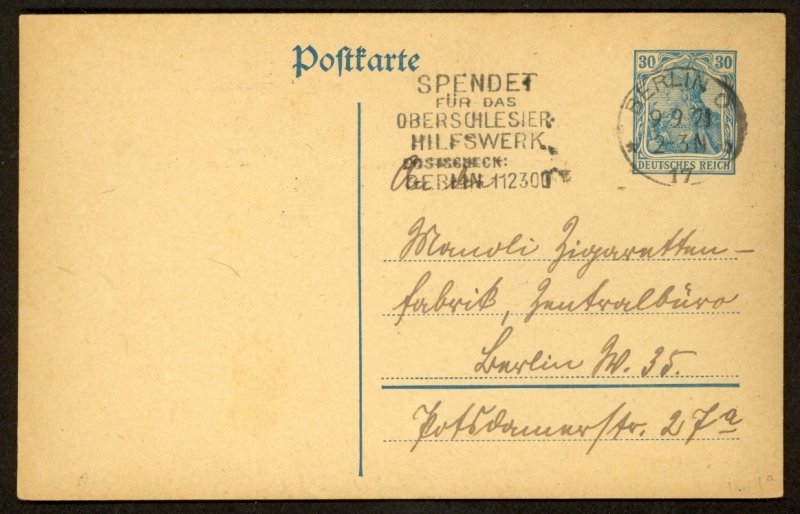 Postkarte
SPENDET
FÜR DAS
OBERSCHLESIER-
HILFSWERK
POSTSCHECK:
BERLIN 112300
30 30
BERLIN O
9.9.21
2-3N
17
DEUTSCHES REICH
An die
Manoli Zigaretten-
fabrik, Zentralbüro
Berlin W. 35.
Potsdamerstr. 27a